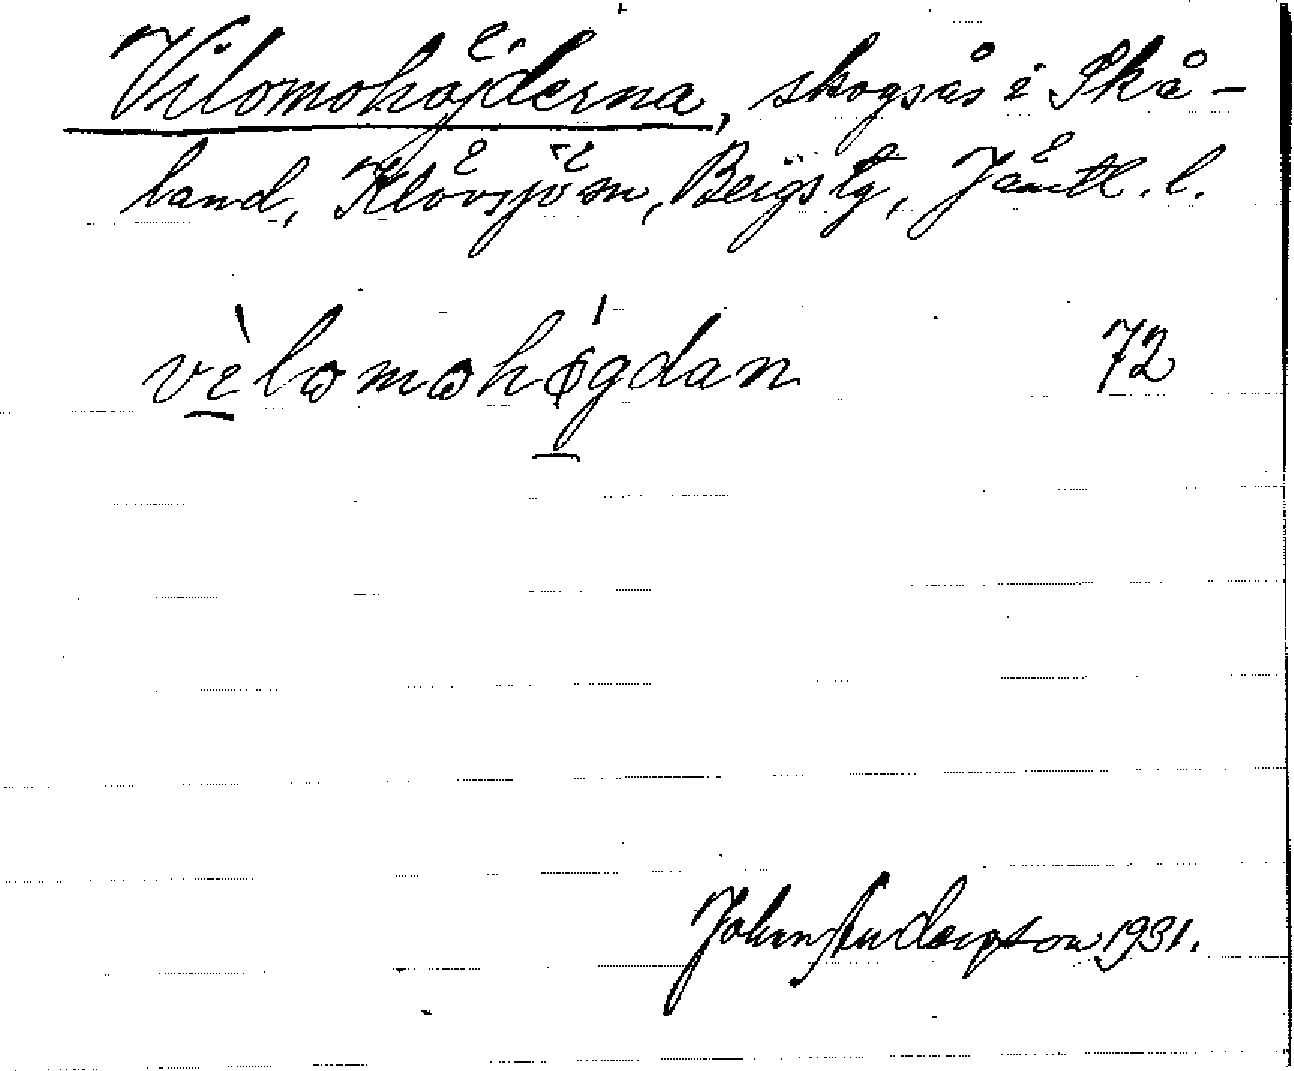 Vilomohöjderna, skogsås i Skå-
land, Klövsjö sn, Bergs tg, Jämtl. l.
vɩlωmωhøgdan 72
John Andersson 1931.